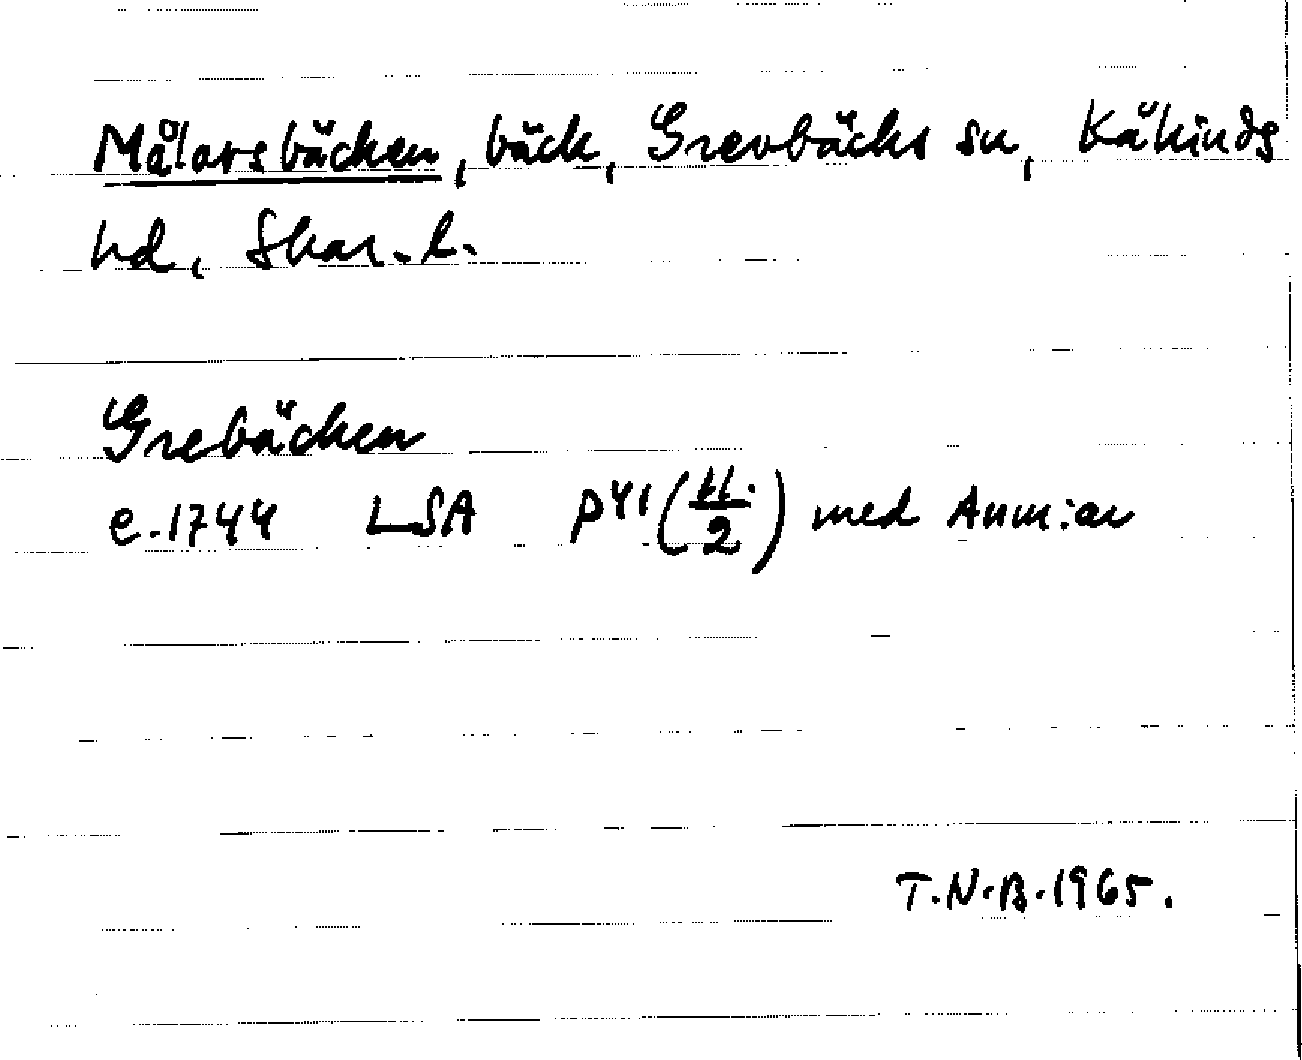 Målarsbäcken, bäck, Grevbäcks sn, Kåkinds
hd, Skar. l.
Grebäcken
e. 1744 LSA P41 (11./2) med Anm:ar
T.N.B. 1965.